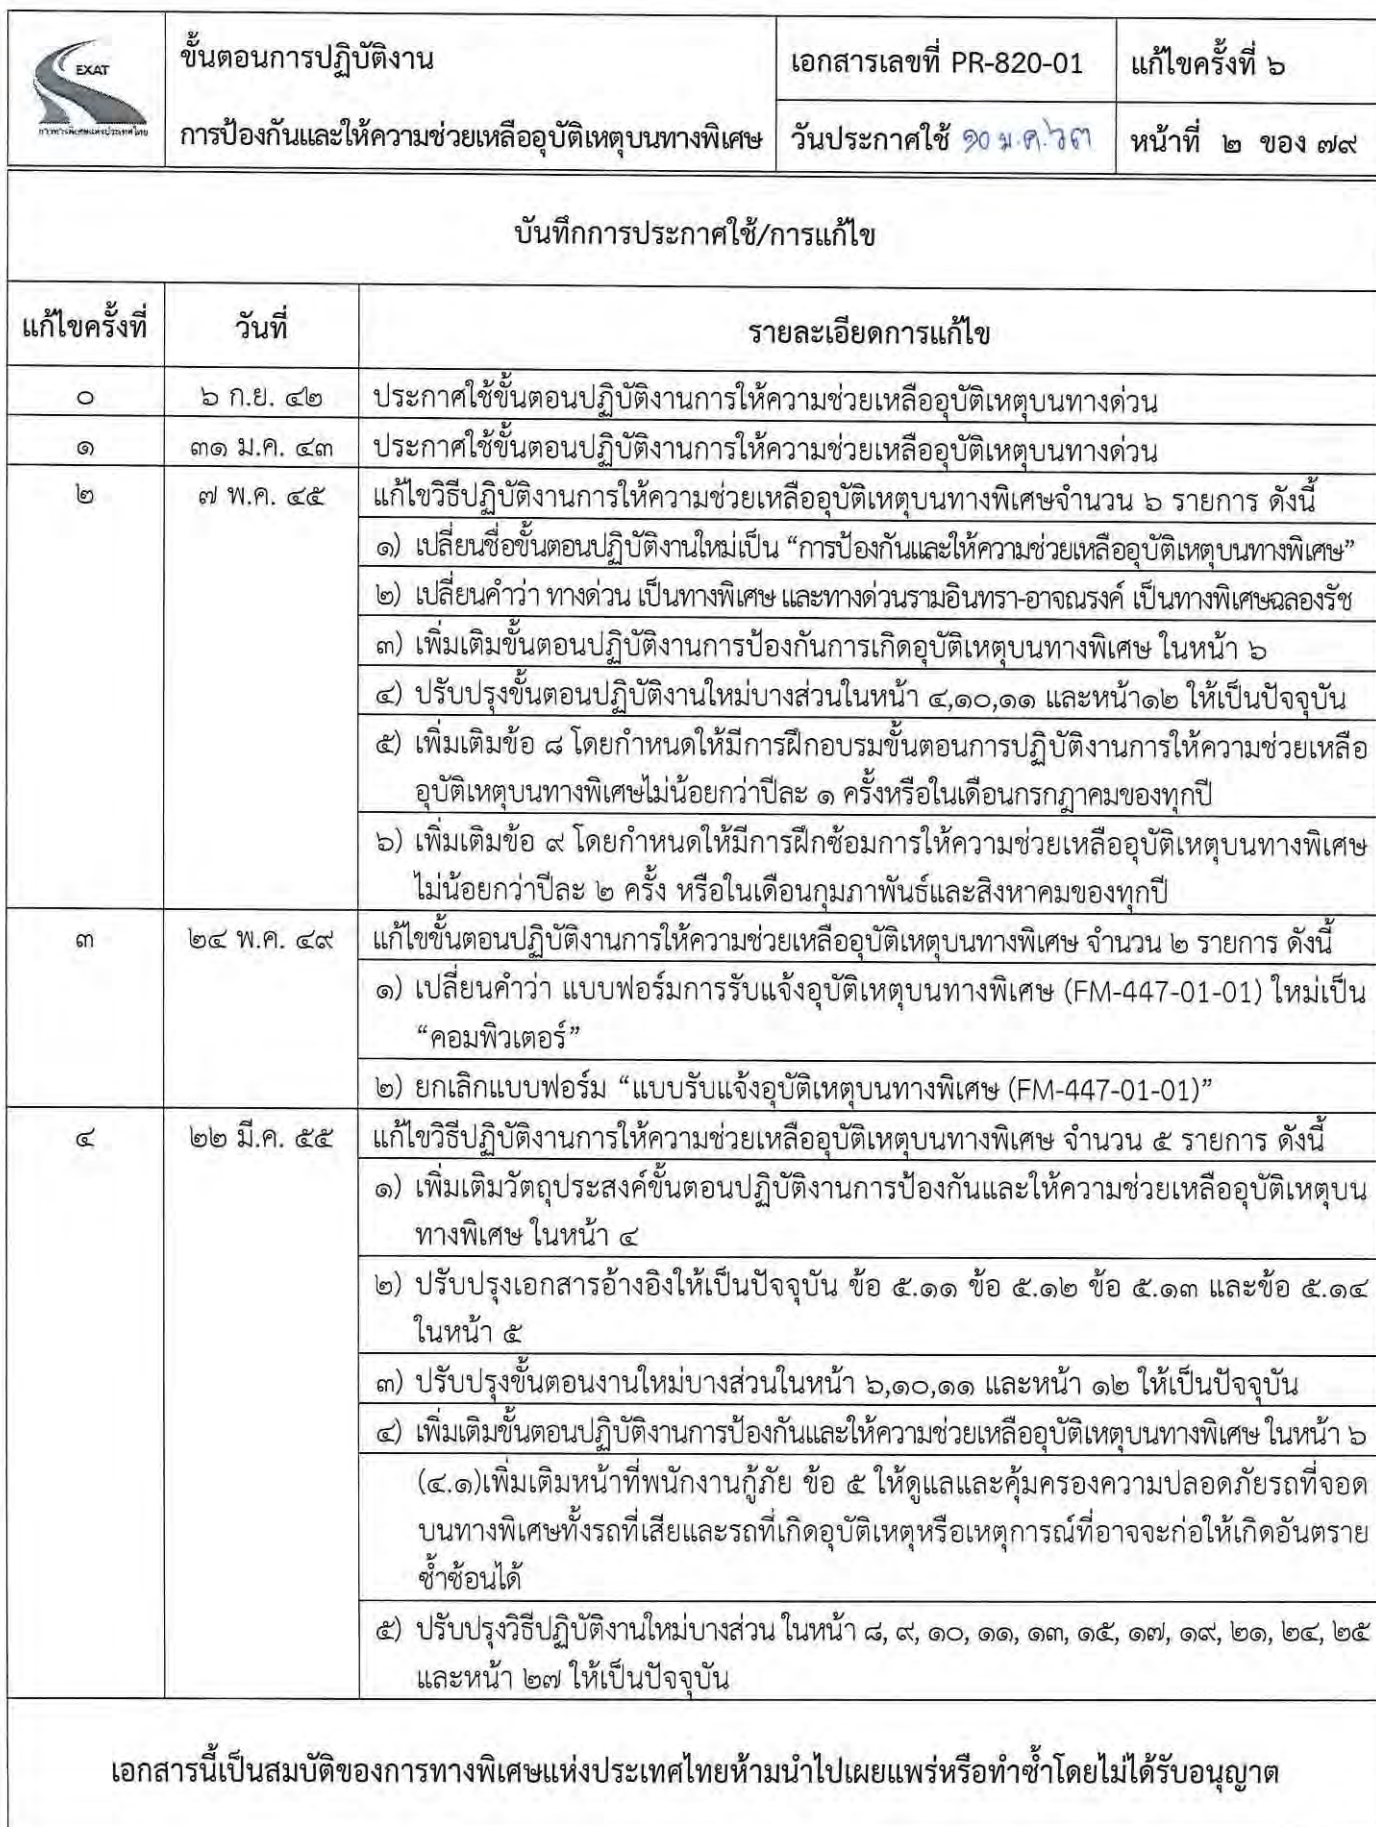 EXAT
การทางพิเศษแห่งประเทศไทย
ขั้นตอนการปฏิบัติงาน
การป้องกันและให้ความช่วยเหลืออุบัติเหตุบนทางพิเศษ
เอกสารเลขที่ PR-820-01
แก้ไขครั้งที่ ๖
วันประกาศใช้ ๑๐ ม.ค. ๖๓
หน้าที่ ๒ ของ ๗๙
บันทึกการประกาศใช้/การแก้ไข
แก้ไขครั้งที่ วันที่ รายละเอียดการแก้ไข
๐ ๖ ก.ย. ๔๒ ประกาศใช้ขั้นตอนปฏิบัติงานการให้ความช่วยเหลืออุบัติเหตุบนทางด่วน
๑ ๓๑ ม.ค. ๔๓ ประกาศใช้ขั้นตอนปฏิบัติงานการให้ความช่วยเหลืออุบัติเหตุบนทางด่วน
๒ ๗ พ.ค. ๔๕ แก้ไขวิธีปฏิบัติงานการให้ความช่วยเหลืออุบัติเหตุบนทางพิเศษจำนวน ๖ รายการ ดังนี้
๑) เปลี่ยนชื่อขั้นตอนปฏิบัติงานใหม่เป็น “การป้องกันและให้ความช่วยเหลืออุบัติเหตุบนทางพิเศษ”
๒) เปลี่ยนคำว่า ทางด่วน เป็นทางพิเศษ และทางด่วนรามอินทรา-อาจณรงค์ เป็นทางพิเศษฉลองรัช
๓) เพิ่มเติมขั้นตอนปฏิบัติงานการป้องกันการเกิดอุบัติเหตุบนทางพิเศษ ในหน้า ๖
๔) ปรับปรุงขั้นตอนปฏิบัติงานใหม่บางส่วนในหน้า ๔,๑๐,๑๑ และหน้า๑๒ ให้เป็นปัจจุบัน
๕) เพิ่มเติมข้อ ๘ โดยกำหนดให้มีการฝึกอบรมขั้นตอนการปฏิบัติงานการให้ความช่วยเหลือ
อุบัติเหตุบนทางพิเศษไม่น้อยกว่าปีละ ๑ ครั้งหรือในเดือนกรกฎาคมของทุกปี
๖) เพิ่มเติมข้อ ๙ โดยกำหนดให้มีการฝึกซ้อมการให้ความช่วยเหลืออุบัติเหตุบนทางพิเศษ
ไม่น้อยกว่าปีละ ๒ ครั้ง หรือในเดือนกุมภาพันธ์และสิงหาคมของทุกปี
๓ ๒๔ พ.ค. ๔๙ แก้ไขขั้นตอนปฏิบัติงานการให้ความช่วยเหลืออุบัติเหตุบนทางพิเศษ จำนวน ๒ รายการ ดังนี้
๑) เปลี่ยนคำว่า แบบฟอร์มการรับแจ้งอุบัติเหตุบนทางพิเศษ (FM-447-01-01) ใหม่เป็น
“คอมพิวเตอร์”
๒) ยกเลิกแบบฟอร์ม “แบบรับแจ้งอุบัติเหตุบนทางพิเศษ (FM-447-01-01)”
๔ ๒๒ มี.ค. ๕๕ แก้ไขวิธีปฏิบัติงานการให้ความช่วยเหลืออุบัติเหตุบนทางพิเศษ จำนวน ๕ รายการ ดังนี้
๑) เพิ่มเติมวัตถุประสงค์ขั้นตอนปฏิบัติงานการป้องกันและให้ความช่วยเหลืออุบัติเหตุบน
ทางพิเศษ ในหน้า ๔
๒) ปรับปรุงเอกสารอ้างอิงให้เป็นปัจจุบัน ข้อ ๕.๑๑ ข้อ ๕.๑๒ ข้อ ๕.๑๓ และข้อ ๕.๑๔
ในหน้า ๕
๓) ปรับปรุงขั้นตอนงานใหม่บางส่วนในหน้า ๖,๑๐,๑๑ และหน้า ๑๒ ให้เป็นปัจจุบัน
๔) เพิ่มเติมขั้นตอนปฏิบัติงานการป้องกันและให้ความช่วยเหลืออุบัติเหตุบนทางพิเศษ ในหน้า ๖
(๔.๑)เพิ่มเติมหน้าที่พนักงานกู้ภัย ข้อ ๕ ให้ดูแลและคุ้มครองความปลอดภัยรถที่จอด
บนทางพิเศษทั้งรถที่เสียและรถที่เกิดอุบัติเหตุหรือเหตุการณ์ที่อาจจะก่อให้เกิดอันตราย
ซ้ำซ้อนได้
๕) ปรับปรุงวิธีปฏิบัติงานใหม่บางส่วน ในหน้า ๘, ๙, ๑๐, ๑๑, ๑๓, ๑๕, ๑๗, ๑๙, ๒๑, ๒๔, ๒๕
และหน้า ๒๗ ให้เป็นปัจจุบัน
เอกสารนี้เป็นสมบัติของการทางพิเศษแห่งประเทศไทยห้ามนำไปเผยแพร่หรือทำซ้ำโดยไม่ได้รับอนุญาต